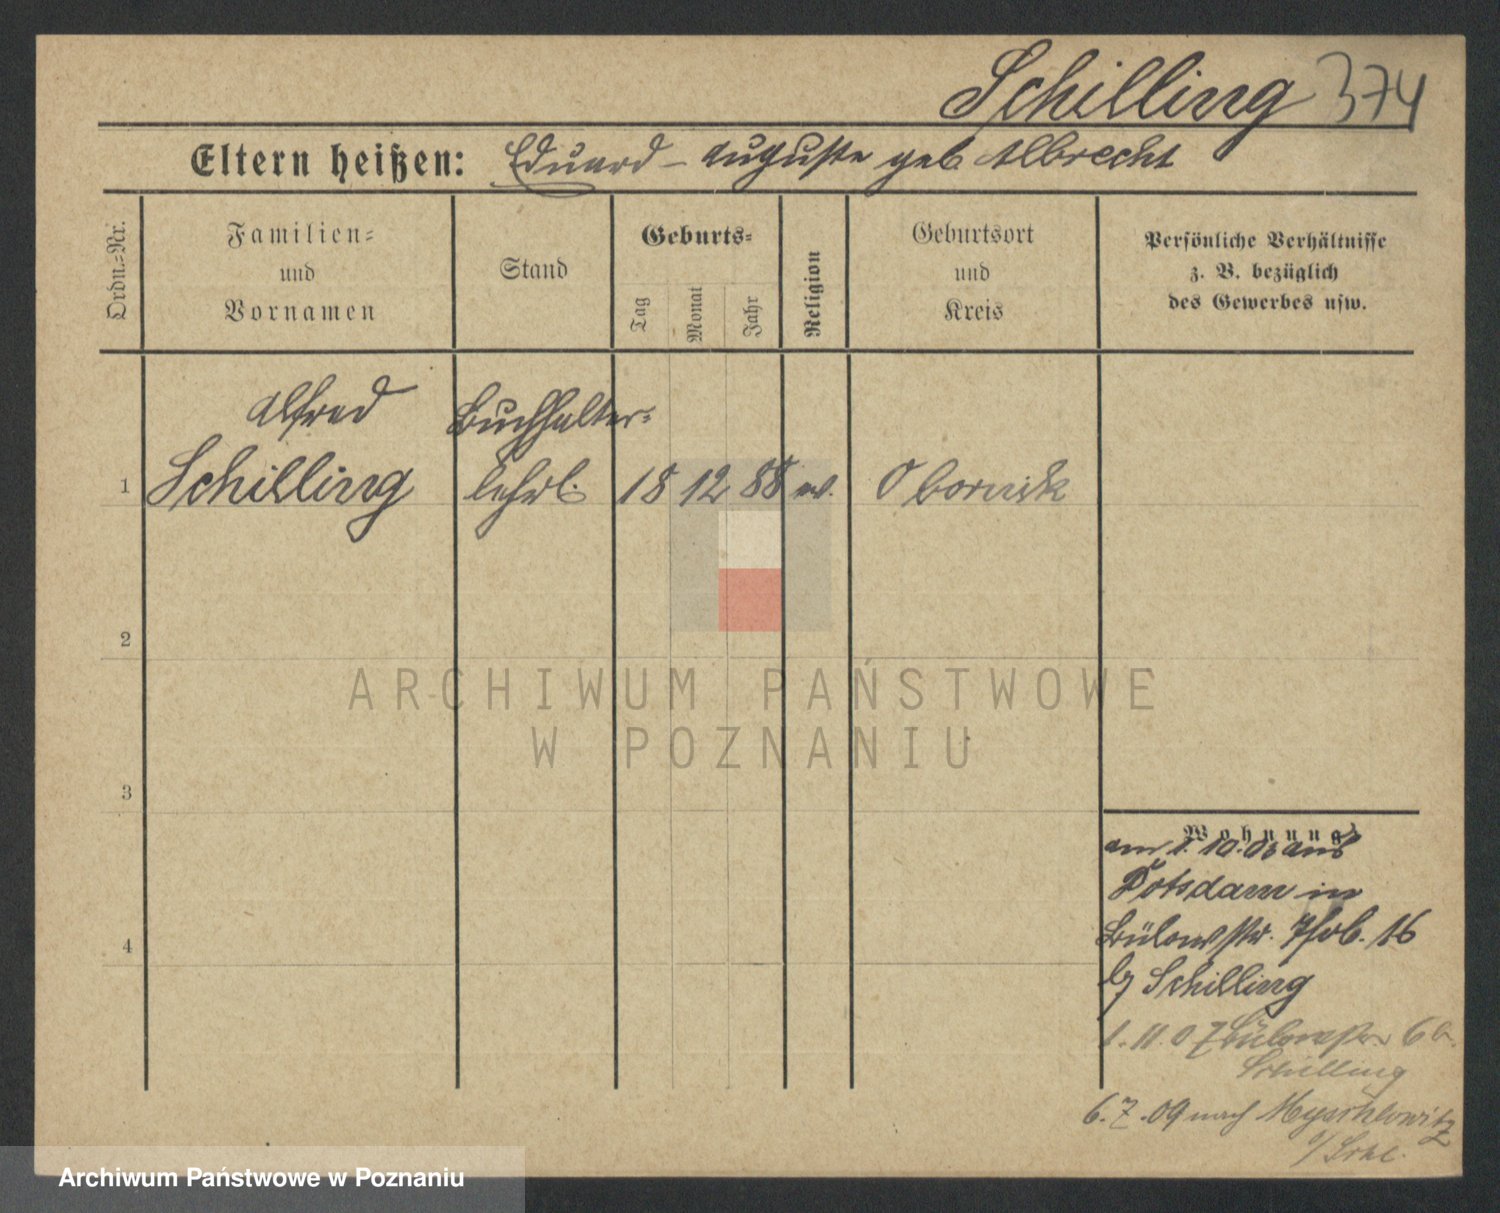 Schilling 374
Eltern heißen: Eduard - Auguste geb Albrecht
Ordn.=Nr.
Familien=
und
Vornamen
Stand
Geburts=
Tag
Monat
Jahr
Religion
Geburtsort
und
Kreis
Persönliche Verhältnisse
z. B. bezüglich
des Gewerbes usw.
Alfred
Schilling
Buchhalter=
lehrl.
1
18 12 88 ev. Obornik
2
ARCHIWUM PAŃSTWOWE
W POZNANIU
3
Wohnung
am 1. 10. aus
Potsdam in
4
Bülowstr. 16
b/ Schilling
1. 11. 07 Bülowstr. 6 b.
Schilling
6. 7. 09 nach
Archiwum Państwowe w Poznaniu